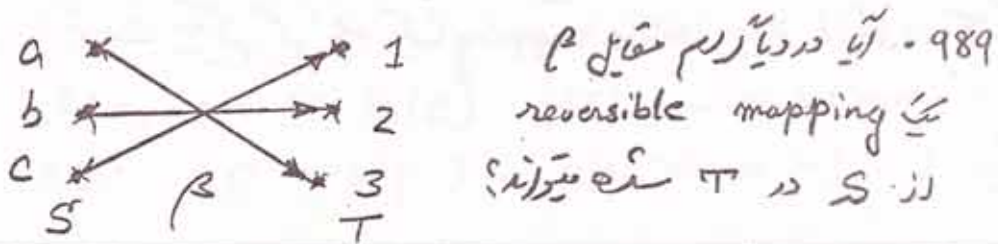 989 - آیا در دیاگرام مقابل β
یک reversible mapping
از S در T شده میتواند؟
a 1
b 2
c 3
S β T